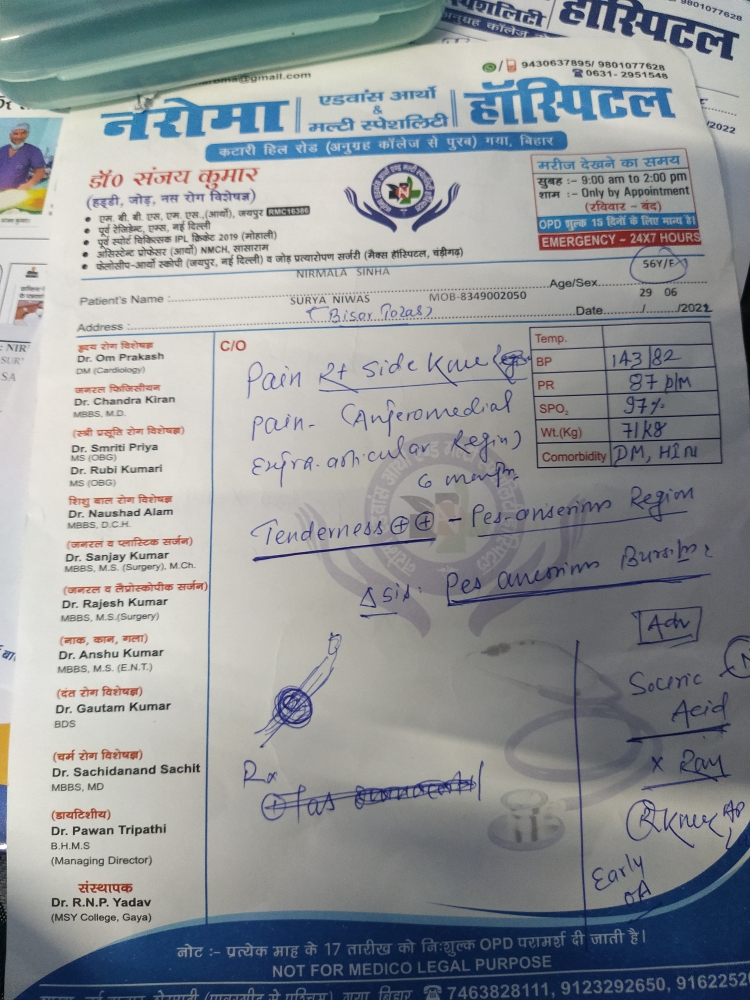 पेशलिटी
हॉस्पिटल
9801077628
अनुग्रह कॉलेज से
/2022
@gmail.com
9430637895/ 9801077628
0631- 2951548
नरोमा
एडवांस आर्थो
&
मल्टी स्पेशलिटी
हॉस्पिटल
कटारी हिल रोड (अनुग्रह कॉलेज से पुरब) गया, बिहार
डॉ० संजय कुमार
(हड्डी, जोड़, नस रोग विशेषज्ञ)
एम. बी. बी. एस, एम. एस.,(आर्थो), जयपुर RMC16386
पूर्व रेजिडेन्ट, एम्स, नई दिल्ली
पूर्व स्पोर्ट चिकित्सक IPL क्रिकेट 2019 (मोहाली)
असिस्टेन्ट प्रोफेसर (आर्थो) NMCH, सासाराम
फेलोसीप-आर्थो स्कोपी (जयपुर, नई दिल्ली) व जोड़ प्रत्यारोपण सर्जरी (मैक्स हॉस्पिटल, चंड़ीगढ़)
मरीज देखने का समय
सुबह :- 9:00 am to 2:00 pm
शाम :- Only by Appointment
(रविवार - बंद)
OPD शुल्क 15 दिनों के लिए मान्य है।
EMERGENCY - 24X7 HOURS
NIRMALA SINHA
Age/Sex 56Y/F
Patient's Name : SURYA NIWAS MOB-8349002050
Date 29 / 06 /2022
Address :
हृदय रोग विशेषज्ञ
Dr. Om Prakash
DM (Cardiology)
जनरल फिजिसीयन
Dr. Chandra Kiran
MBBS, M.D.
(स्त्री प्रसूति रोग विशेषज्ञ)
Dr. Smriti Priya
MS (OBG)
Dr. Rubi Kumari
MS (OBG)
शिशु बाल रोग विशेषज्ञ
Dr. Naushad Alam
MBBS, D.C.H.
(जनरल व प्लास्टिक सर्जन)
Dr. Sanjay Kumar
MBBS, M.S. (Surgery), M.Ch.
(जनरल व लैप्रोस्कोपीक सर्जन)
Dr. Rajesh Kumar
MBBS, M.S.(Surgery)
(नाक, कान, गला)
Dr. Anshu Kumar
MBBS, M.S. (E.N.T.)
(दंत रोग विशेषज्ञ)
Dr. Gautam Kumar
BDS
(चर्म रोग विशेषज्ञ)
Dr. Sachidanand Sachit
MBBS, MD
(डायटिशीय)
Dr. Pawan Tripathi
B.H.M.S
(Managing Director)
संस्थापक
Dr. R.N.P. Yadav
(MSY College, Gaya)
C/O
Temp.
BP 143/82
PR 87 P/M
SPO₂ 97%
Wt.(Kg) 71 kg
Comorbidity DM, HTN
Pain Rt side Knee
Pain - (Anferomedial
Extra-articular Region)
6 month
Tenderness ⊕⊕ - Pes-anserinus Region
Δsis: Pes anserinus Bursitis
Adv
S.uric
Acid
X Ray
(R) Knee AP
Early
OA
Rx
नोट :- प्रत्येक माह के 17 तारीख को निःशुल्क OPD परामर्श दी जाती है।
NOT FOR MEDICO LEGAL PURPOSE
गया, बिहार 7463828111, 9123292650, 91622525